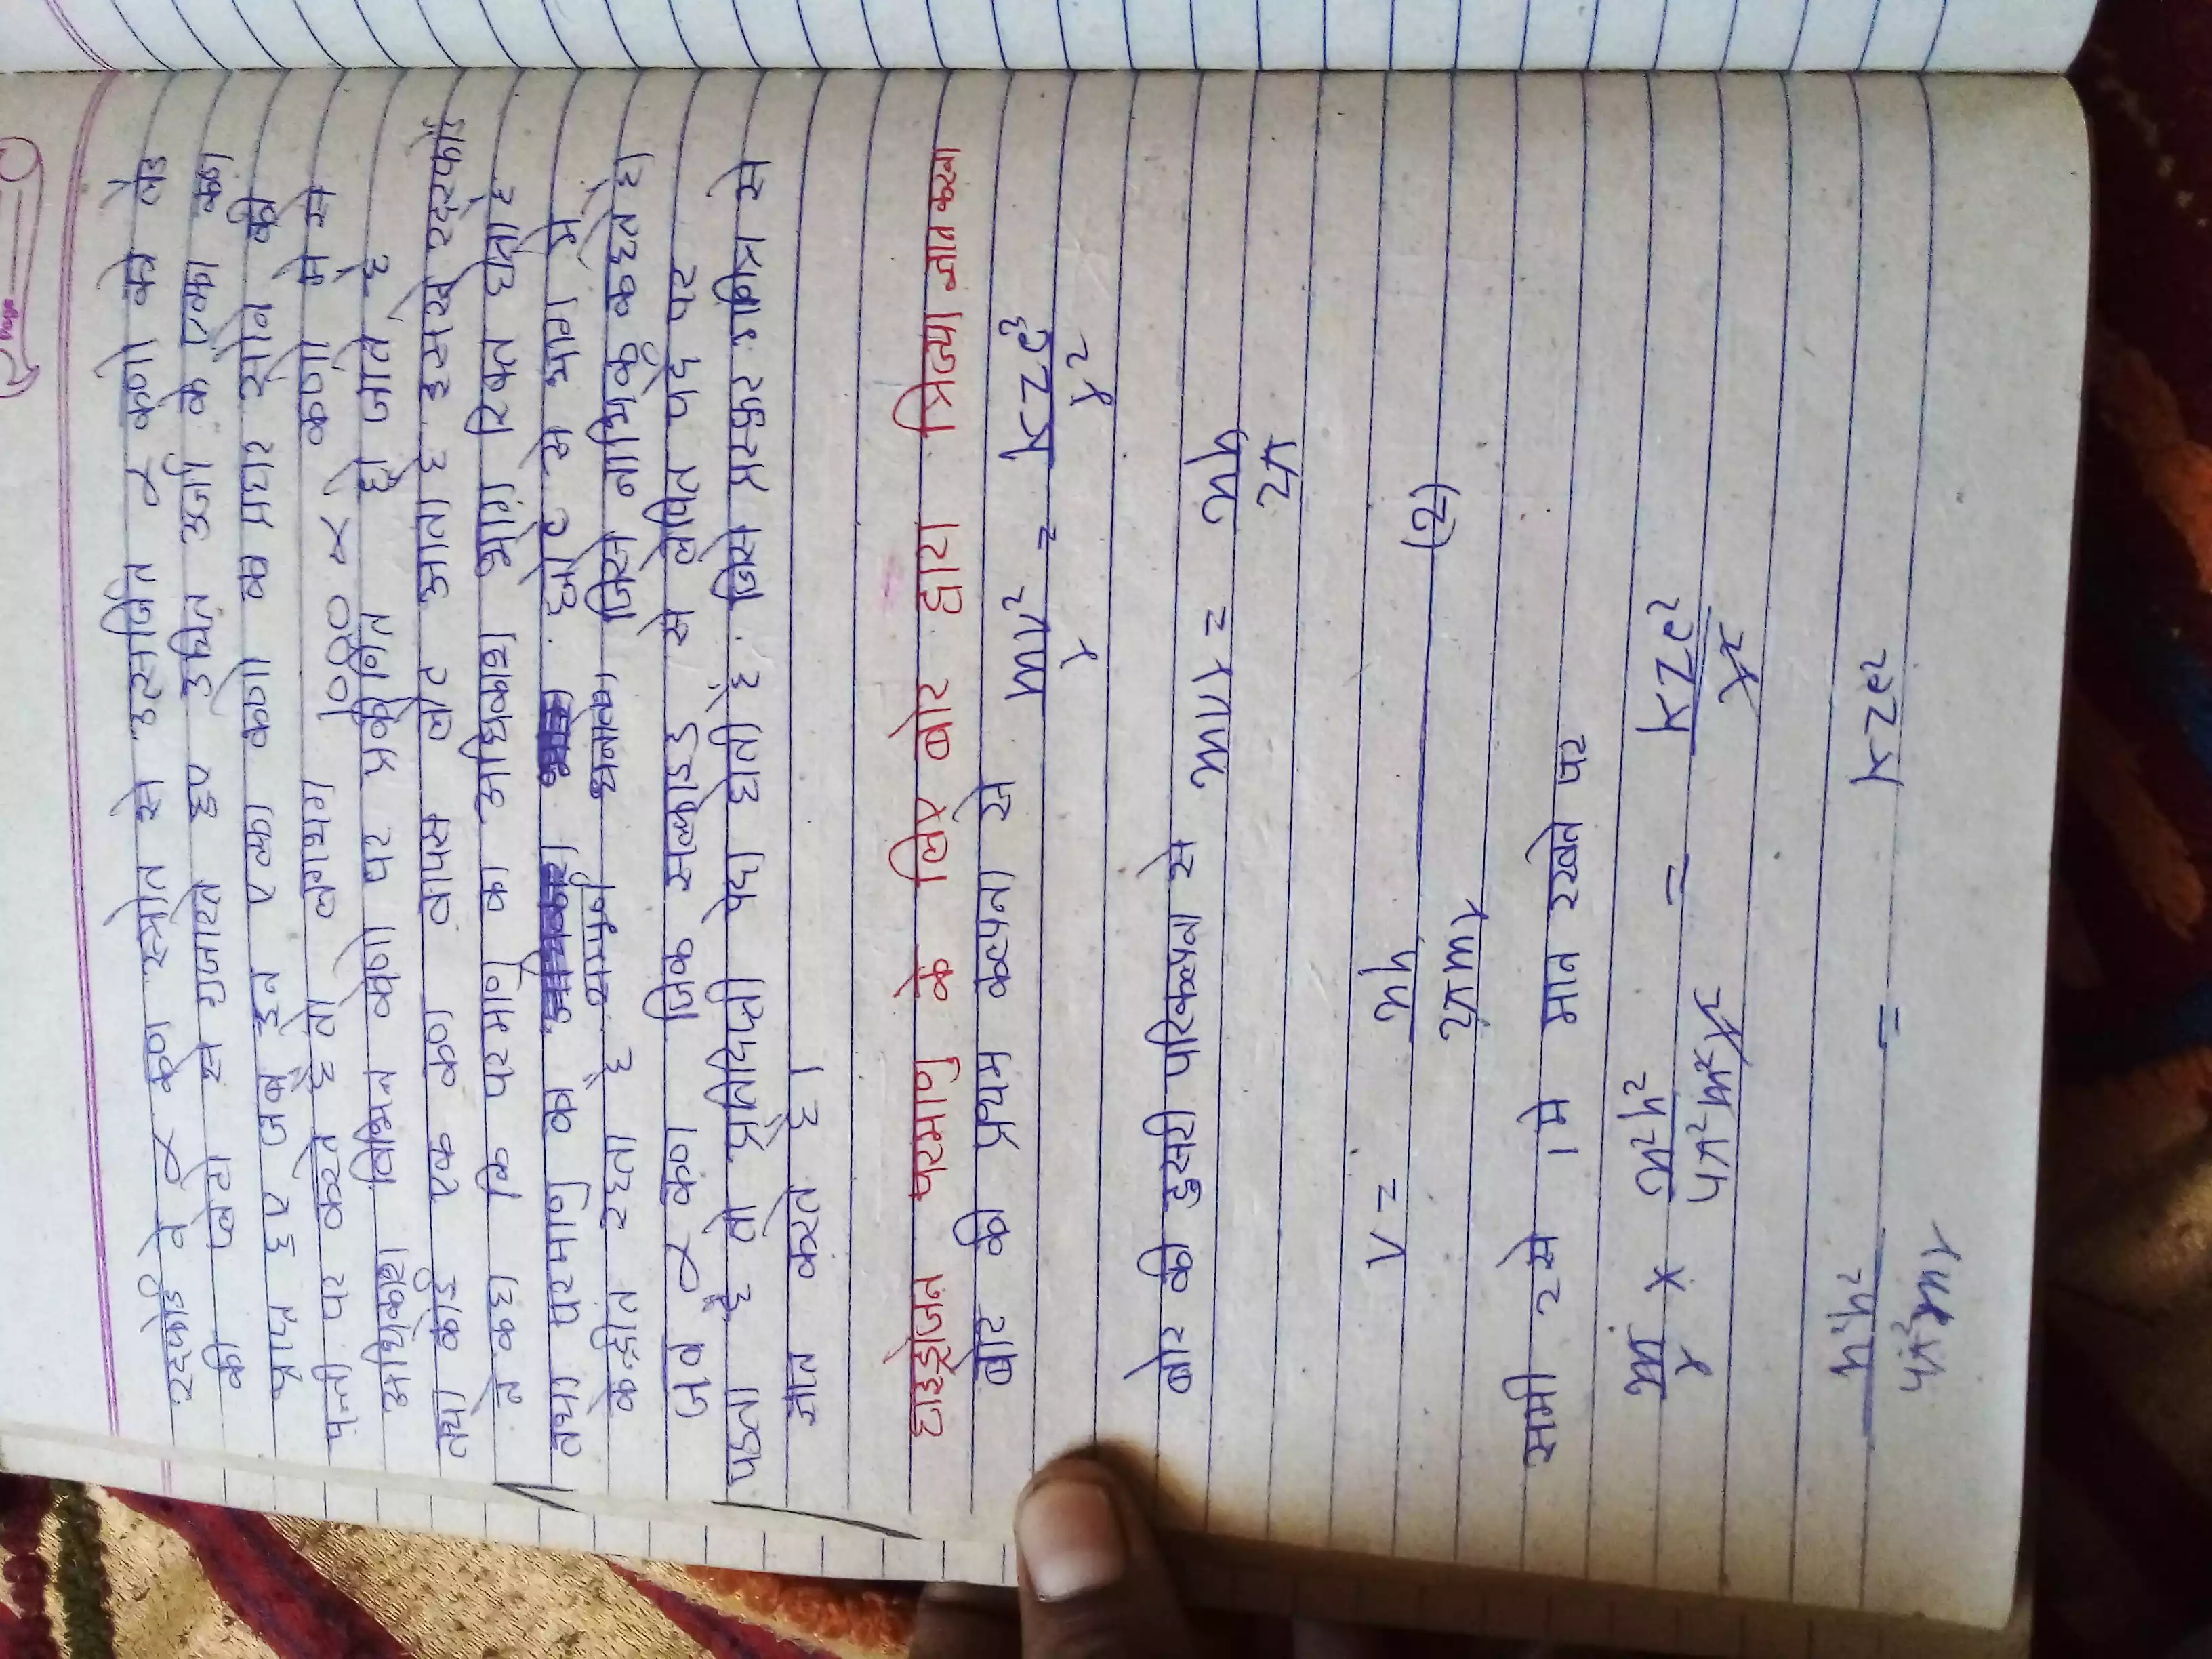 रदरफोर्ड ने α कण स्त्रोत से उत्सर्जित α कणो को लेड
की प्लेटो से गुजारते हुए उचित उर्जा के एल्फा कण
प्राप्त हुए जब इन एल्फा कणो क प्रहार सोने की
पन्नी पर करते है तो लगभग 1000 α कणो मे से
अधिकांश विभिन्न कोणो पर प्रकीर्णित हो जाते है
तथा कोई एक कण वापस लोट आता है इससे रदरफोर्ड
ने कहा कि परमाणु का अधिकांश भाग रिक्त होता है
तथा परमाणु का छोटे से भाग मे
केन्द्रीत रहता है सम्पूर्ण धनावेश जिसे नाभिक कहते है।
जब α कण जिंक सल्फाइड से लेपित पर्दे पर
पडता है तो प्रतिदिप्ती पैदा होती है. जिसे प्रस्फुर गणित्र से
गीन करते है।
हाइड्रोजन परमाणु के लिए बोर द्वारा त्रिज्या ज्ञात करना
बोर की प्रथम कल्पना से mv²/r = KZe²/r²
बोर की दुसरी परिकल्पना से mvr = nh/2π
v = nh/2πmr (2)
समी 2 से 1 मे मान रखने पर
m/r × n²h²/4π²m²r² = KZe²/r²
n²h²/4π²mr = KZe²